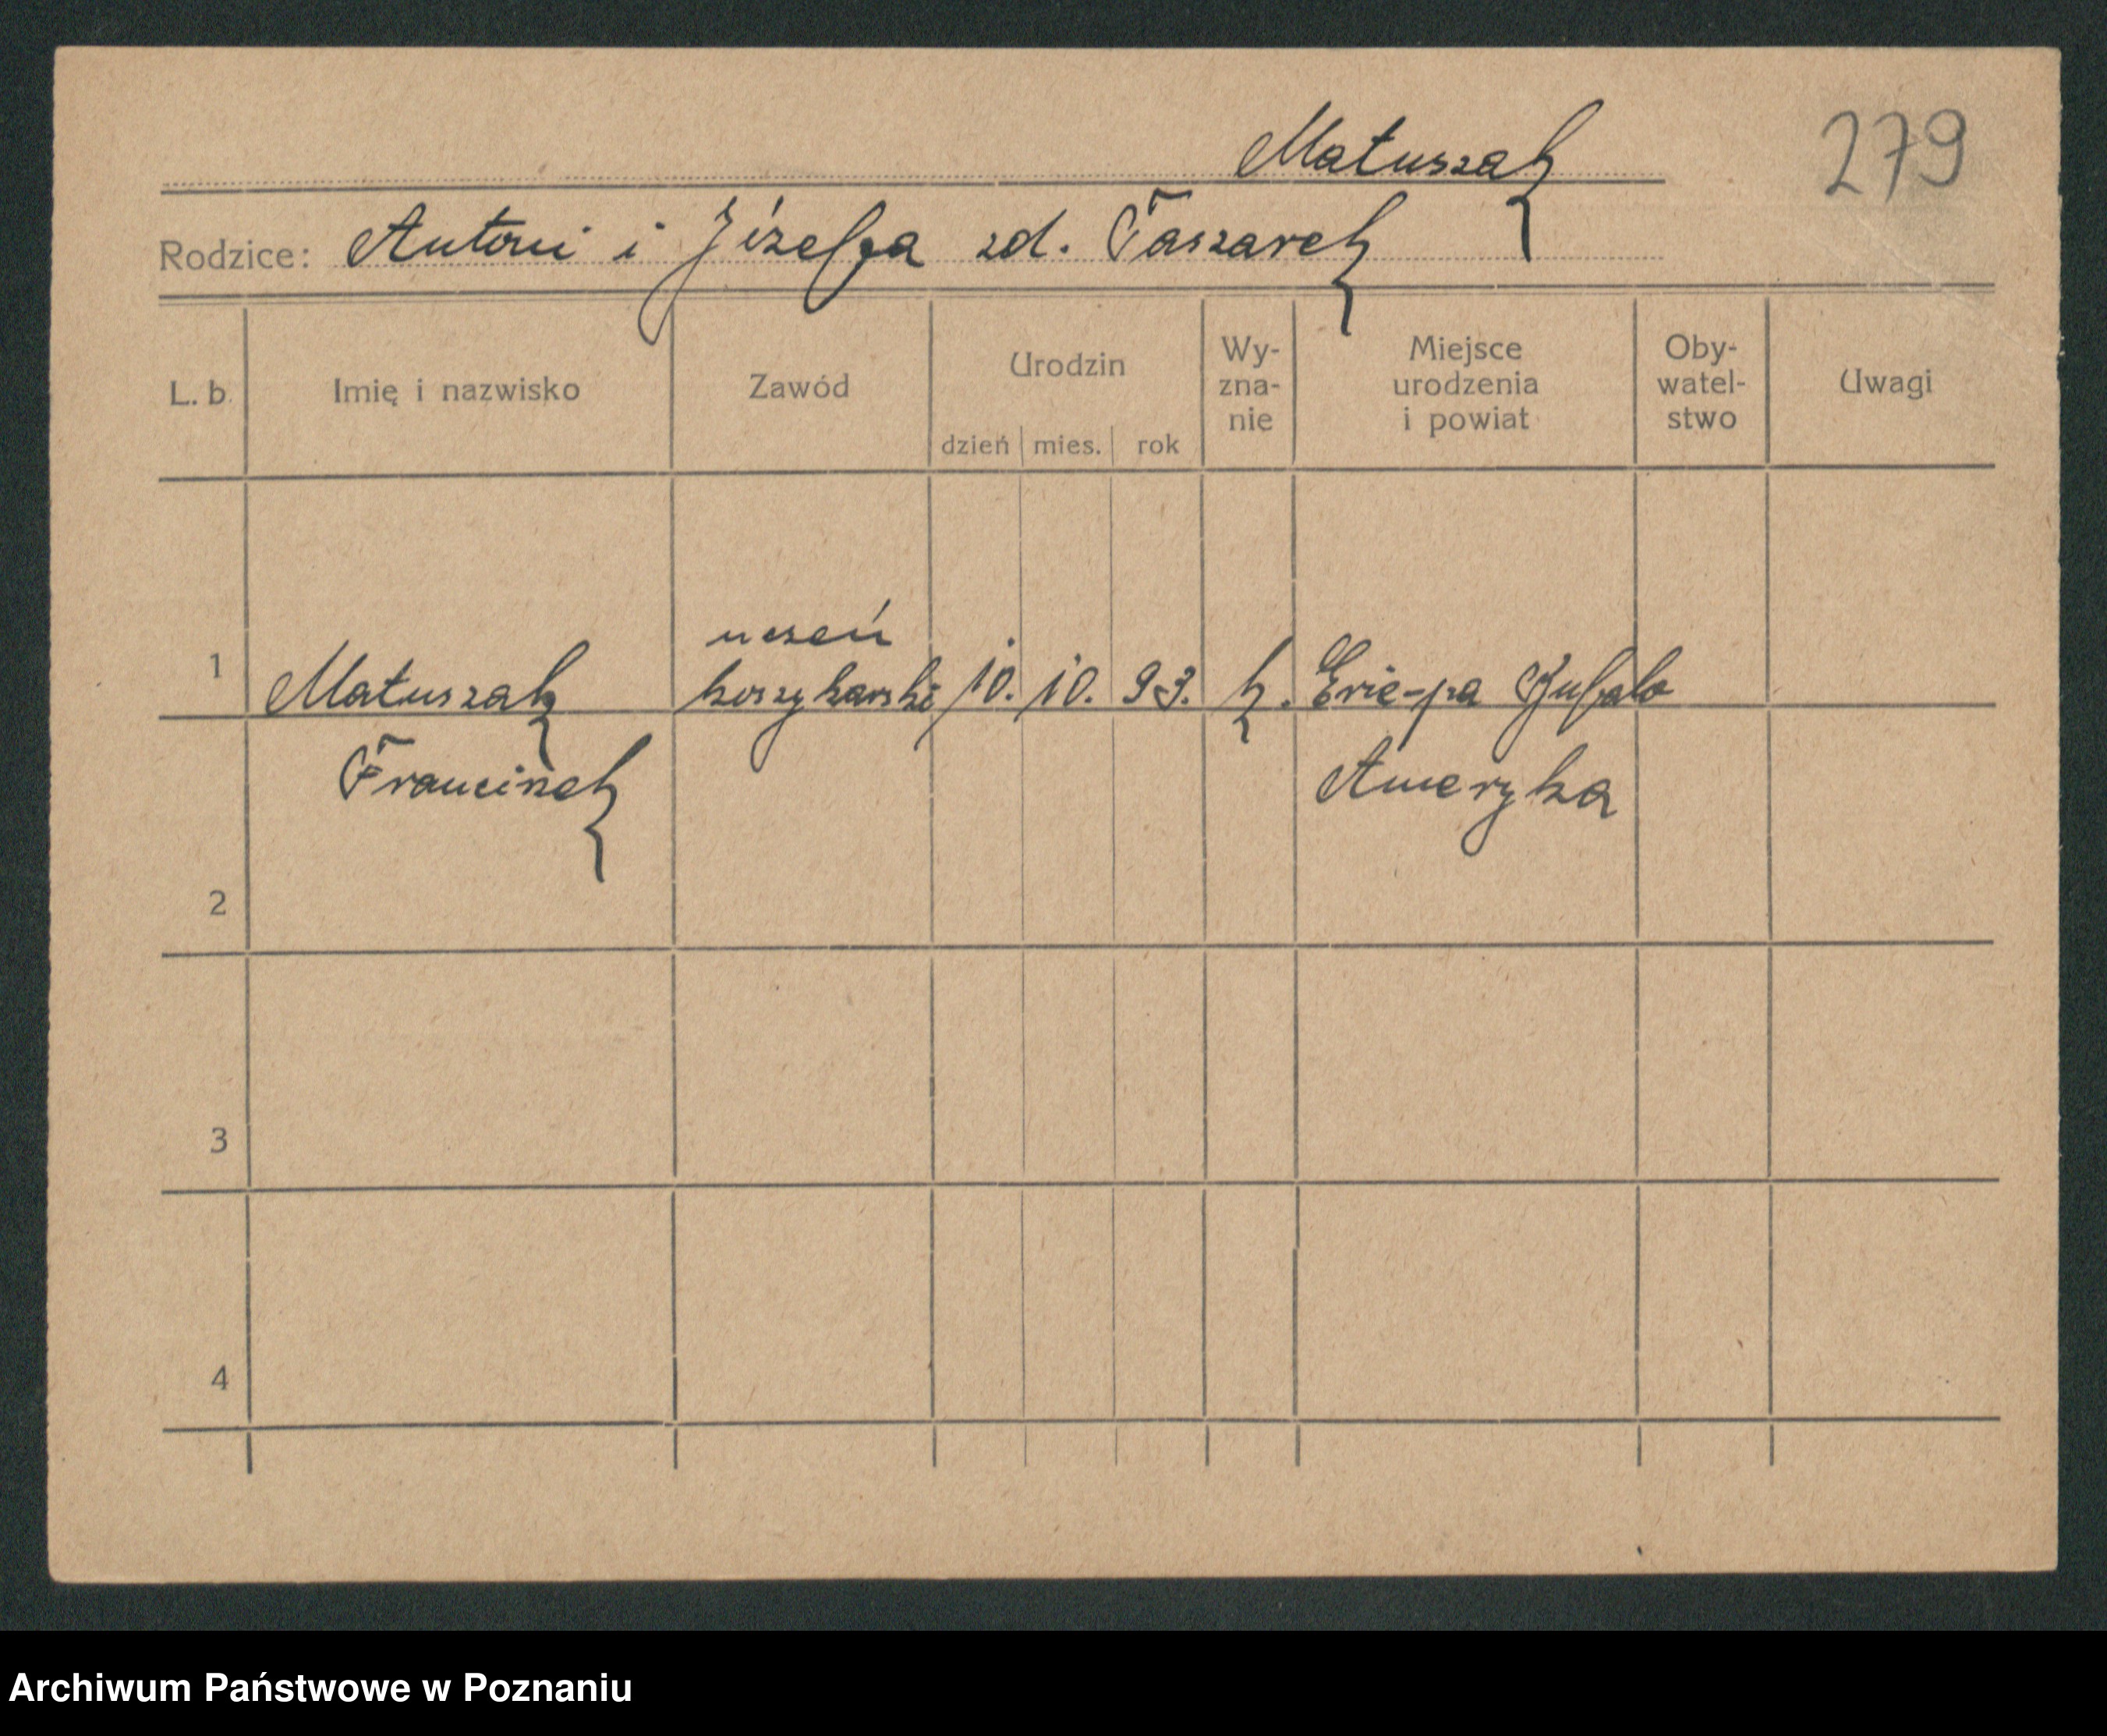 Matuszak
279
Rodzice: Antoni i Józefa zd. Taszarek
L. b.
Imię i nazwisko
Zawód
Urodzin
dzień mies. rok
Wy-
zna-
nie
Miejsce
urodzenia
i powiat
Oby-
watel-
stwo
Uwagi
1
Matuszak
Franciszek
uczeń
koszykarski
10. 10. 93.
k.
Erie-pa Bufalo
Ameryka
2
3
4
Archiwum Państwowe w Poznaniu